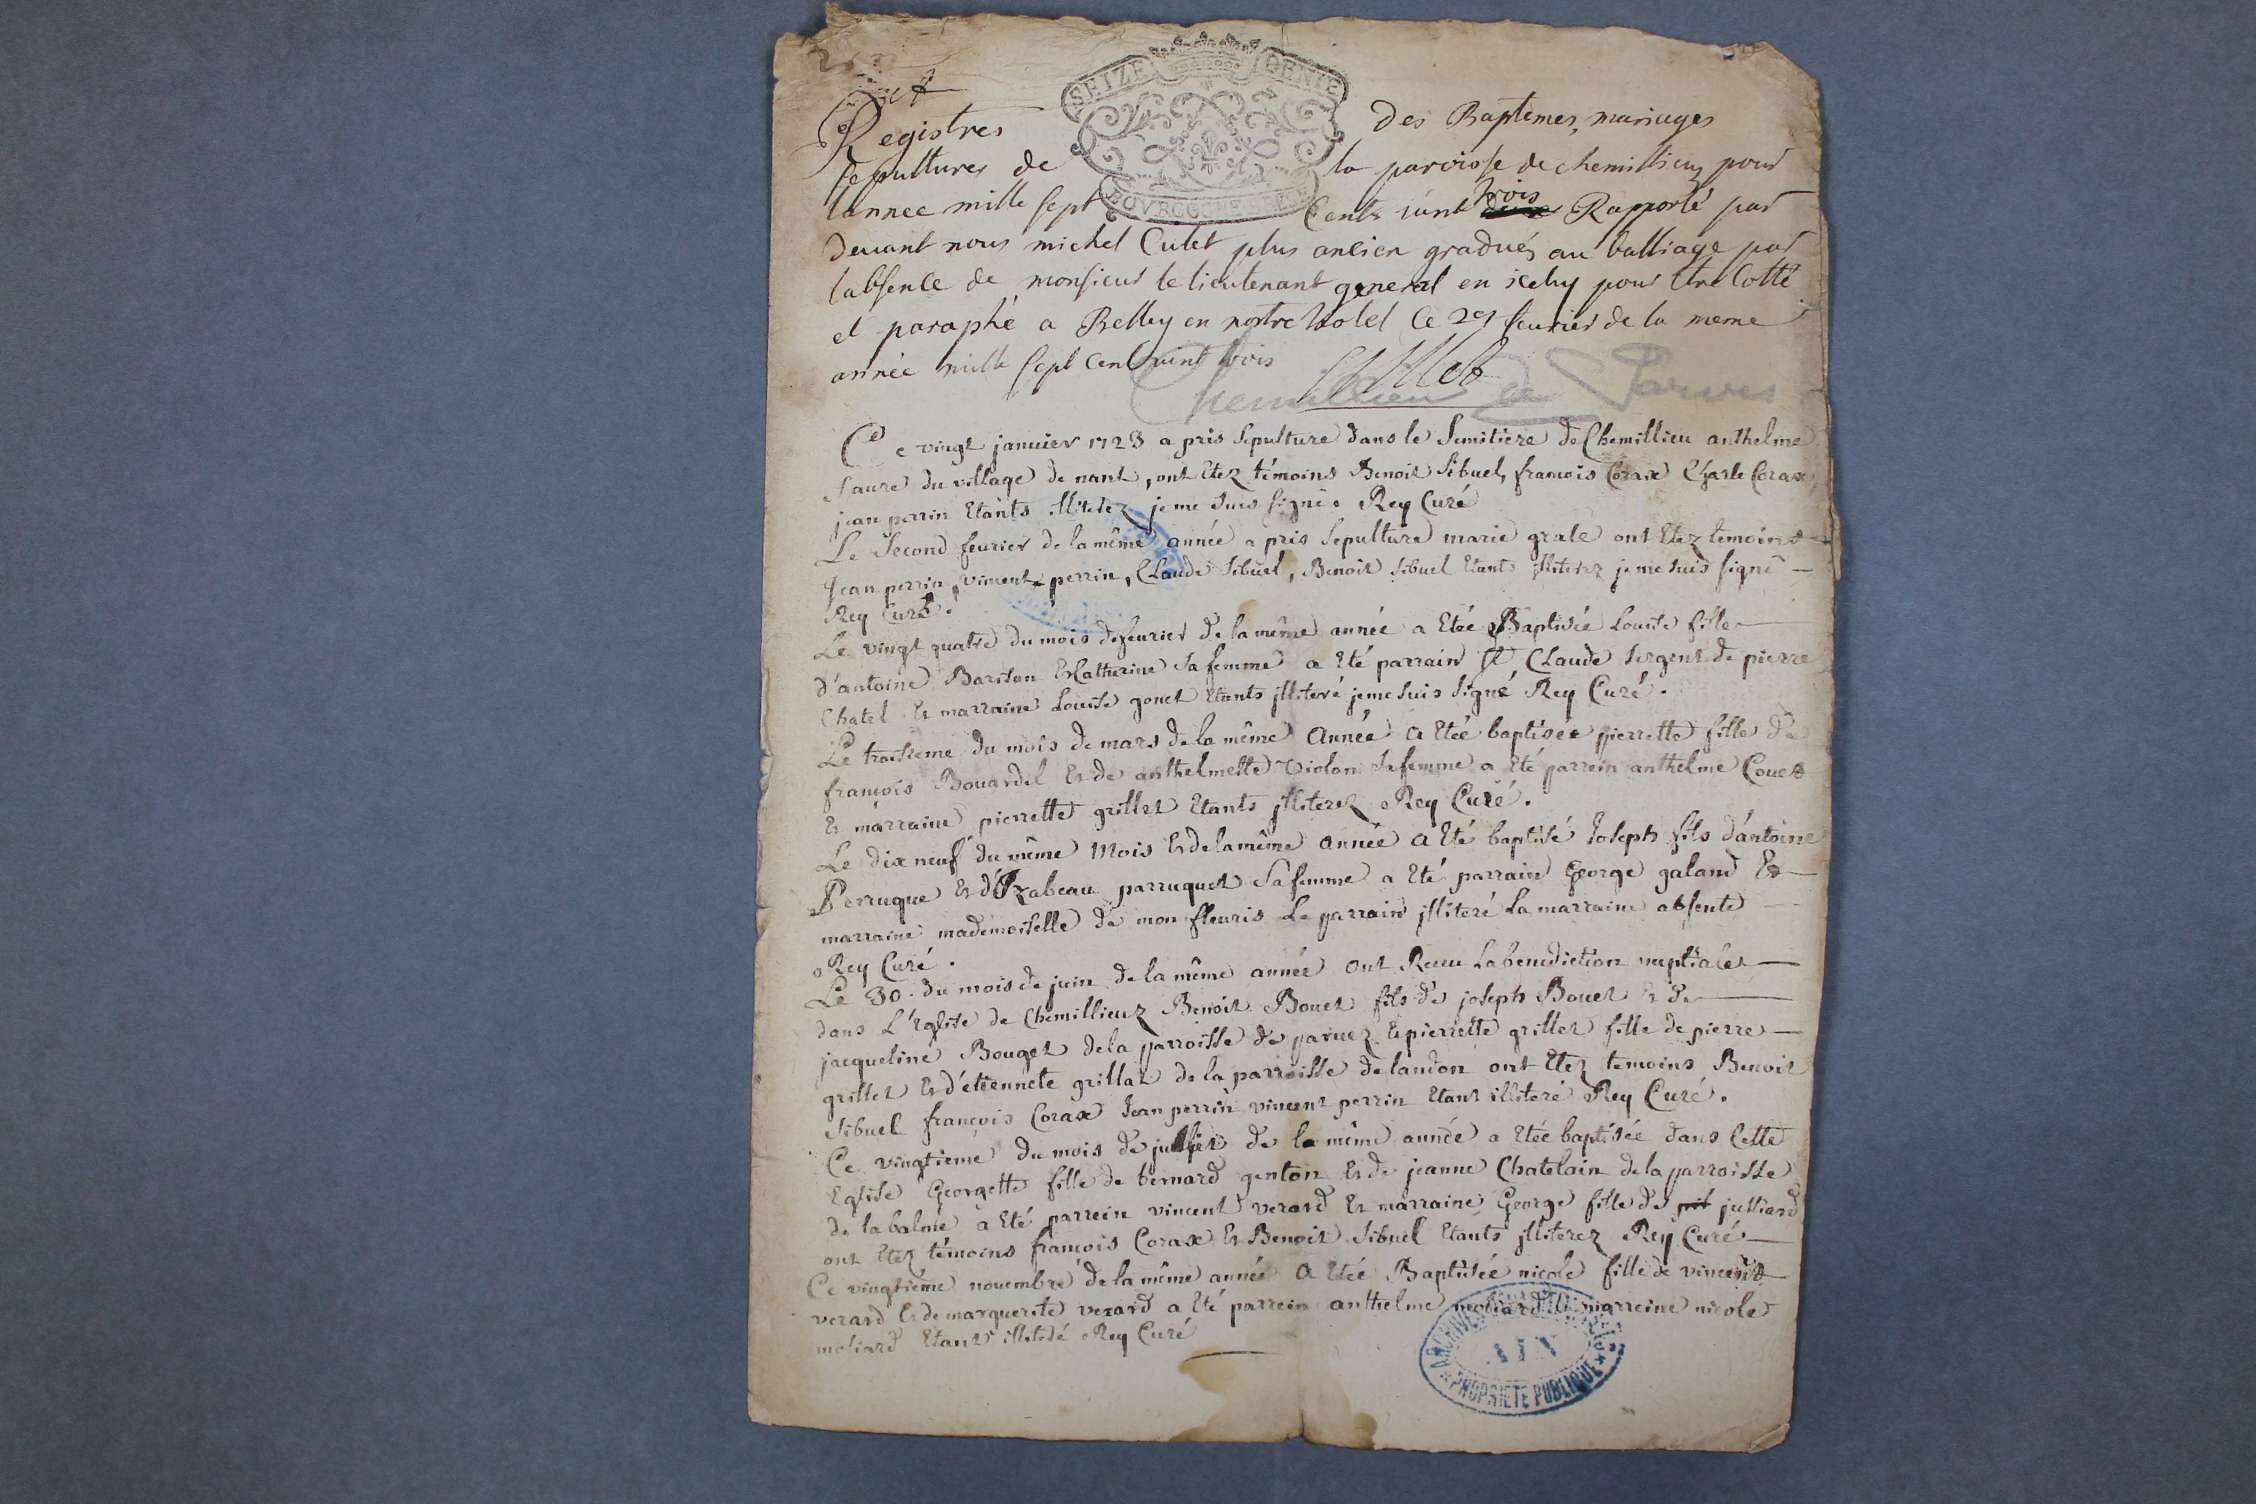 SEIZE DENIE
Registres des Baptemes, mariages
sepultures de la paroisse de chemillieu pour
lannee mille sept Cents vint trois Rapporté par
devant nous michel Cullet plus ancien gradués au balliage par
labsence de monsieur le lieutenant general en iceluy pour être Cotté
et paraphé a Belley en nostre hotel Ce fevrier de la meme
année mille sept Cent vint trois Cullet
Chemillieu de Parves
Ce vingt janvier 1723 a pris sepulture dans le Semitiere de Chemillieu anthelme
faure du village de nant, ont Etez témoins Benoit Sibuel, francois Corax Charle Corax
jean perrin Etants illiterez je me suis signé. Rey Curé
Le Second feurier de la même année a pris Sepulture marie grale ont Etez temoins
Jean perrin, vincent perrin, Claude Sibuel, Benoit Sibuel Etants jlliterez je me suis signé
Rey Curé.
Le vingt quatre du mois de feurier de la même année a Etée Baptisée Louise fille
d'antoine Bariton Et Catherine Sa femme a Eté parrain Claude Sergent de pierre
Chatel Et marraine Louise gonet Etants jlliteré je me suis signé Rey Curé.
Le troisieme du mois de mars de la même Année a Etée baptisée pierrette fille de
françois Bouardel Et de anthelmette Violon Sa femme a Eté parrein anthelme Couet
Et marraine pierrette grillet Etants jlliterez Rey Curé.
Le dix neuf du même Mois Et de la même Année a Eté baptisé Joseph fils d'antoine
Perruque Et d'Izabeau parruquet Sa femme a Eté parrain George galand Et
marraine mademoiselle de mon fleuris Le parrain jlliteré La marraine absente
Rey Curé.
Le 30. du mois de juin de la même année ont Receu La benediction nuptiale
dans L'Eglise de Chemillieuz Benoit Bouet fils de joseph Bouet Et de
jacqueline Bouget de la parroisse de paruez Et pierrette grillet fille de pierre
grillet Et d'etiennete grillat de la parroisse de landon ont Etez temoins Benoit
Sibuel françois Corax Jean perrin vincent perrin Etant illiteré Rey Curé.
Ce vingtieme du mois de juillet de la même année a Etée baptisée dans Cette
Eglise Georgette fille de bernard genton Et de jeanne Chatelain de la parroisse
de la balme a Eté parrein vincent verard Et marraine George fille de julliard
ont Etez témoins françois Corax Et Benoit Sibuel Etants jlliterez Rey Curé
Ce vingtième nouembre de la même année a Etée Baptisée nicole fille de vincent
verard Et de marguerite verard a Eté parrein anthelme moliard Et marreine nicole
moliard Etant illiteré Rey Curé
ARCHIVES
AIN
PROPRIETE PUBLIQUE